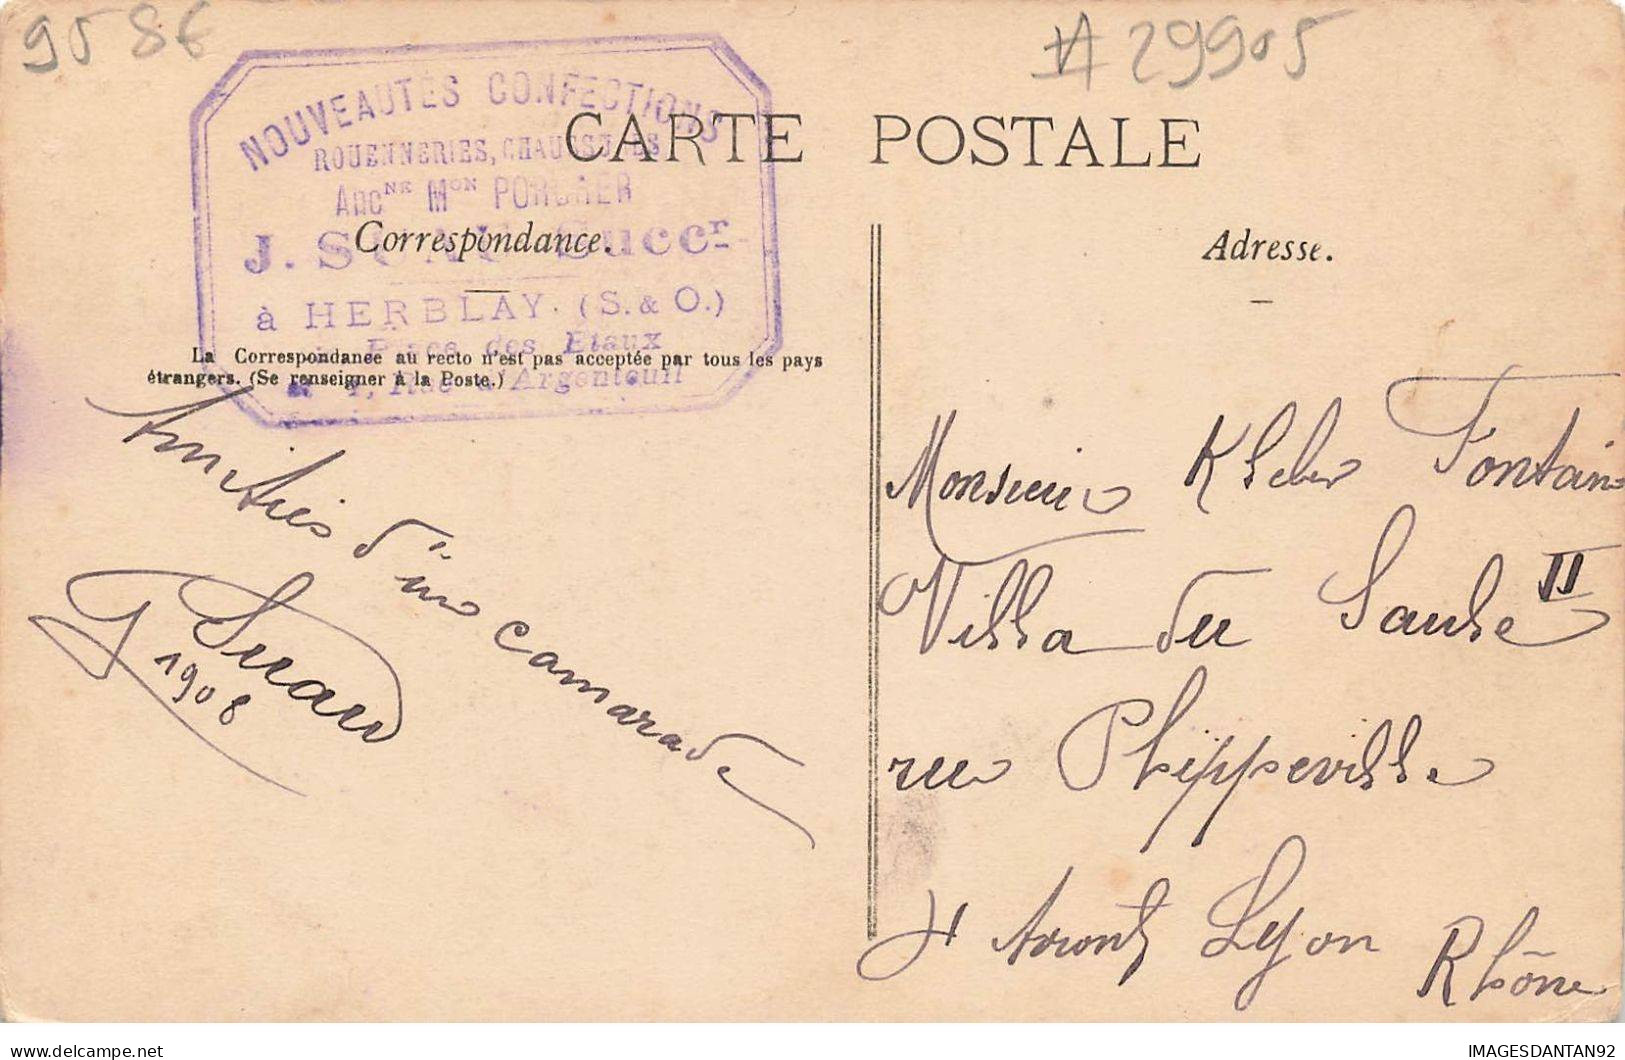 95 86
# 29905
NOUVEAUTÉS CONFECTIONS
ROUENNERIES, CHAUSSURES
Anc^NE M^ON PORCHER
J. Succ^r
à HERBLAY. (S. & O.)
Place des Etaux
4, Rue d'Argenteuil
CARTE POSTALE
Correspondance.
La Correspondance au recto n'est pas acceptée par tous les pays
étrangers. (Se renseigner à la Poste.)
Amitiés d'un camarade
1908
Adresse.
Monsieur Kleber Fontain
Villa du Saule II
rue Phippeville
Lyon
Rhône
IMAGESDANTAN92
delcampe.net